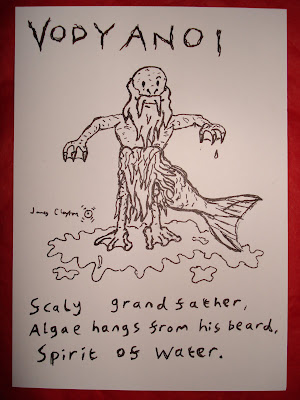 VODYANOI
James Clayton
Scaly grandfather,
Algae hangs from his beard,
Spirit of Water.